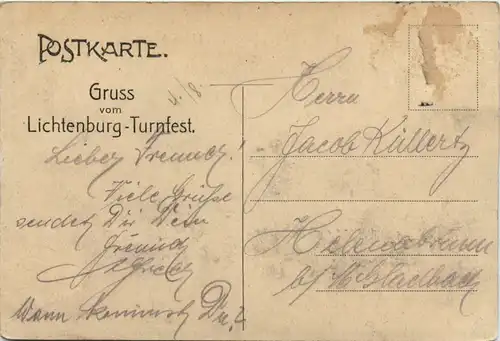 POSTKARTE.
Gruss
vom
Lichtenburg-Turnfest.
Lieber Freund!
Viele Grüße
sendet Dir Dein
Freund
Wann kommst Du?
Herrn
Jacob Küllertz
Helenabrunn
b/ M. Gladbach